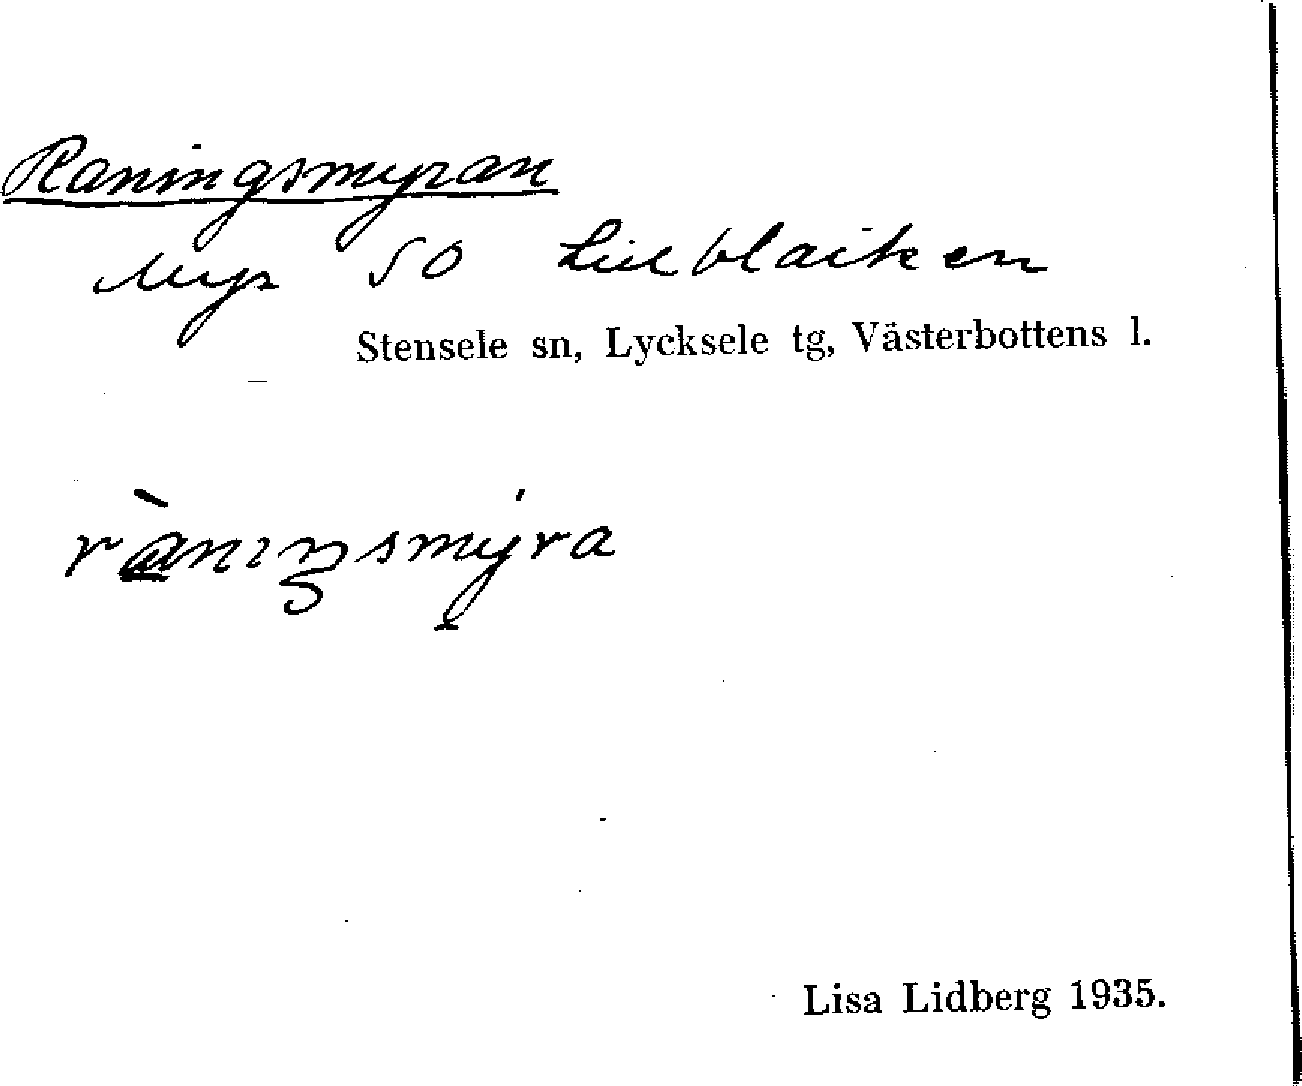 Raningsmyran
Myr SO Lill blaiken
Stensele sn, Lycksele tg, Västerbottens l.
Lisa Lidberg 1935.